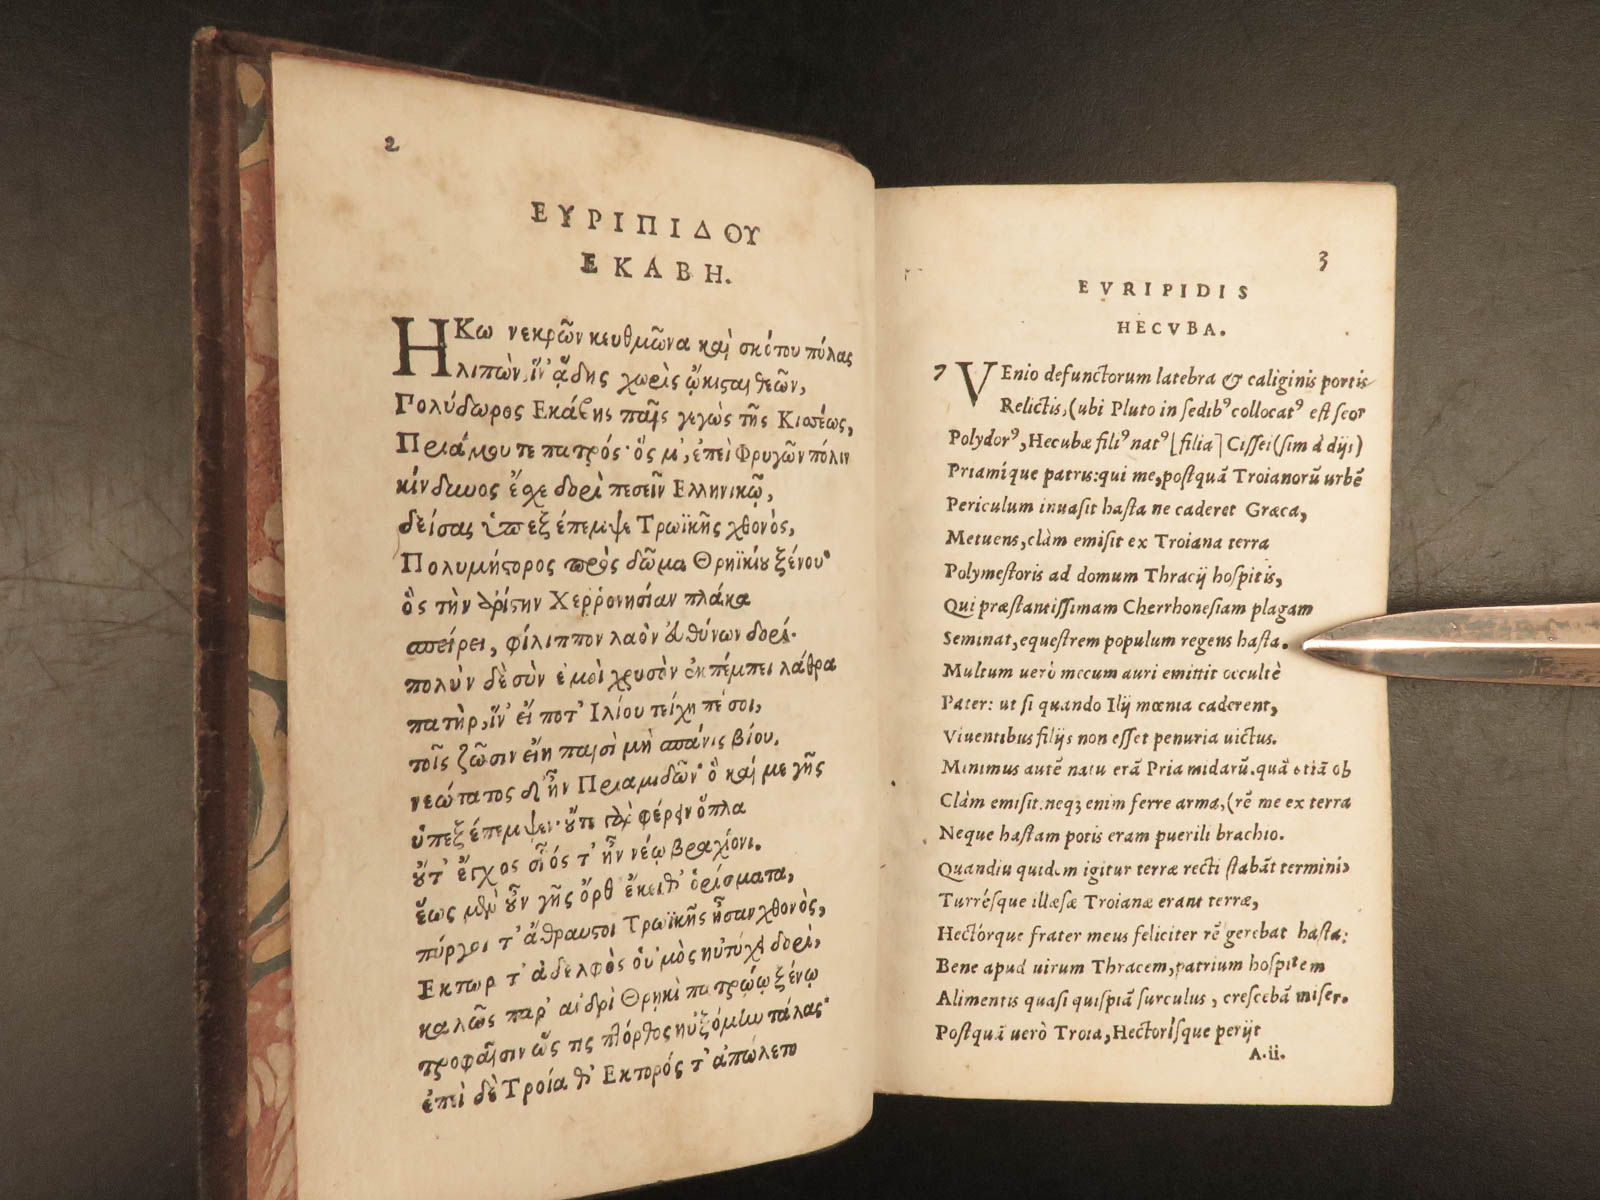 2
ΕΥΡΙΠΙΔΟΥ
ΕΚΑΒΗ.
ΗΚω νεκρῶν κευθμῶνα καὶ σκότου πύλας
λιπὼν, ἵν' ᾅδης χωρὶς ᾤκισται θεῶν,
Πολύδωρος Εκάβης παῖς γεγὼς τῆς Κισσέως,
Πριάμου τε πατρός· ὅς μ', ἐπεὶ Φρυγῶν πόλιν
κίνδυνος ἔσχε δορὶ πεσεῖν Ελληνικῷ,
δείσας ὑπεξέπεμψε Τρωϊκῆς χθονὸς,
Πολυμήστορος πρὸς δῶμα Θρηϊκίου ξένου·
ὃς τὴν ἀρίστην Χερρονησίαν πλάκα
σπείρει, φίλιππον λαὸν εὐθύνων δορί·
πολὺν δὲ σὺν ἐμοὶ χρυσὸν ἐκπέμπει λάθρα
πατὴρ, ἵν' εἴ ποτ' Ιλίου τείχη πέσοι,
τοῖς ζῶσιν εἴη παισὶ μὴ σπάνις βίου.
νεώτατος δ' ἦν Πριαμιδῶν· ὃ καί με γῆς
ὑπεξέπεμψεν· οὔτε γὰρ φέρειν ὅπλα
οὔτ' ἔγχος οἷός τ' ἦν νέῳ βραχίονι.
ἕως μὲν οὖν γῆς ὄρθ' ἔκειθ' ὁρίσματα,
πύργοι τ' ἄθραυστοι Τρωϊκῆς ἦσαν χθονὸς,
Εκτωρ τ' ἀδελφὸς οὑμὸς ηὐτύχει δορὶ,
καλῶς παρ' ἀνδρὶ Θρηκὶ πατρῴῳ ξένῳ
τροφαῖσιν ὥς τις πτόρθος ηὐξόμην τάλας·
ἐπεὶ δὲ Τροία θ' Εκτορός τ' ἀπώλετο
3
EVRIPIDIS
HECVBA.
7 VEnio defunctorum latebra & caliginis portis
Relictis, (ubi Pluto in sedibꝰ collocatꝰ est seor
Polydorꝰ, Hecubæ filiꝰ natꝰ [filia] Cissei (sim à dijs)
Priamíque patris: qui me, postquã Troianorũ urbẽ
Periculum inuasit hasta ne caderet Græca,
Metuens, clàm emisit ex Troiana terra
Polymestoris ad domum Thracij hospitis,
Qui præstantissimam Cherrhonesiam plagam
Seminat, equestrem populum regens hasta.
Multum uerò mecum auri emittit occultè
Pater: ut si quando Ilij mœnia caderent,
Viuentibus filijs non esset penuria uictus.
Minimus autẽ natu erã Priamidarũ. quã etiã ob
Clàm emisit. neqꝫ enim ferre arma, (rẽ me ex terra
Neque hastam potis eram puerili brachio.
Quandiu quidem igitur terræ recti stabãt termini,
Turrésque illæsæ Troianæ erant terræ,
Hectórque frater meus feliciter rẽ gerebat hasta:
Bene apud uirum Thracem, patrium hospitem
Alimentis quasi quispiã surculus, crescebã miser.
Postquã uerò Troia, Hectorísque perijt
A.ii.